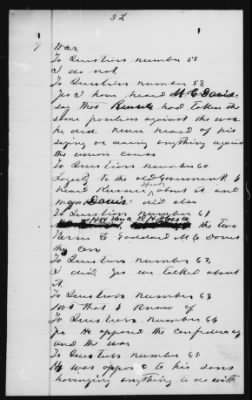 32
War
To Question number 58
I do not
To Question number 59
Yes I have heard M G Davis
say that Russell had taken the
same position against the war
he did never heard of his
saying or doing anything against
the union cause
To Question number 60
Loyalty to the old Government I
heard Russell speak about it and
Davis did also
To Question number 61
the two
Goddard M G Davis
To Question number 62
I did yes we talked about
it
To Question number 63
Not that I know of
To Question number 64
Yes He opposed the Confederacy
and the war
To Question number 65
He was opposed to his sons
having anything to do with